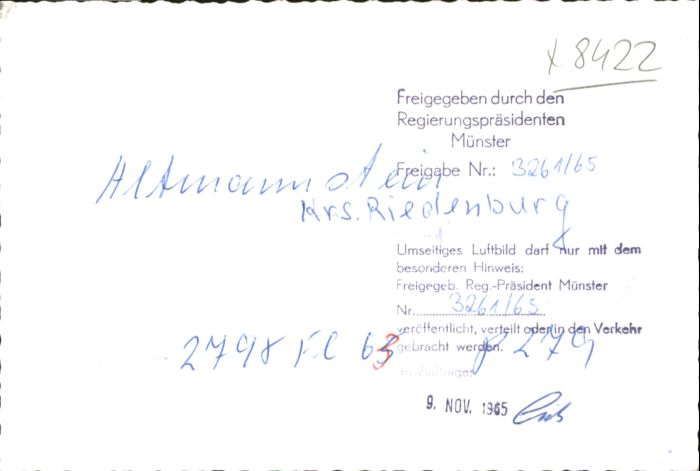 x 8422
Freigegeben durch den
Regierungspräsidenten
Münster
Freigabe Nr.: 3261/65
Altmannstein
Krs. Riedenburg
Umseitiges Luftbild darf nur mit dem
besonderen Hinweis:
Freigegeb. Reg.-Präsident Münster
Nr. 3261/65
veröffentlicht, verteilt oder in den Verkehr
gebracht werden.
2798 FC 63 p 279
Im Auftrage:
9. NOV. 1965